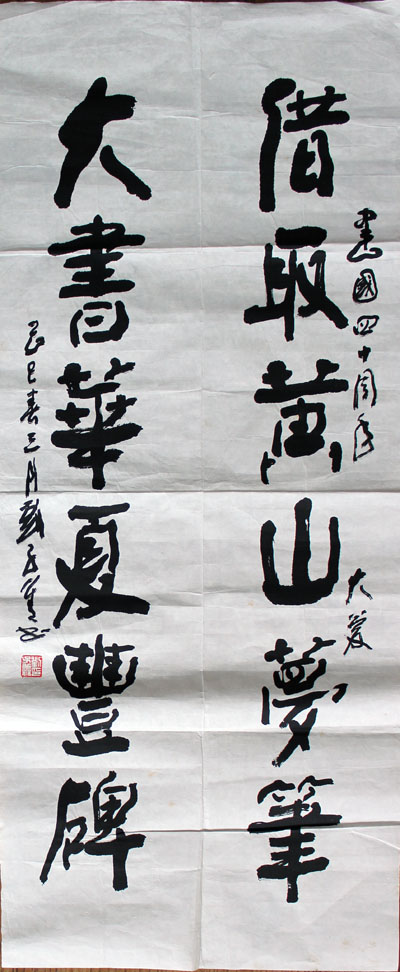 借取黄山夢筆
建國四十周年
大慶
大書華夏豐碑
己巳春三月